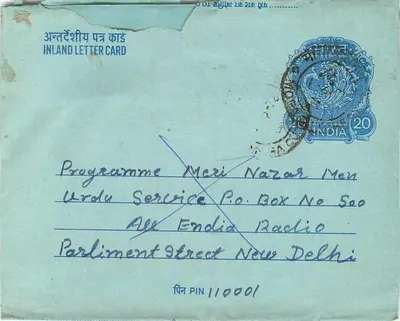 अन्तर्देशीय पत्र कार्ड
INLAND LETTER CARD
20
INDIA
Programme Meri Nazar Men
Urdu Service P.o. Box No 500
All Endia Radio
Parliment Street New Delhi
पिन PIN 110001